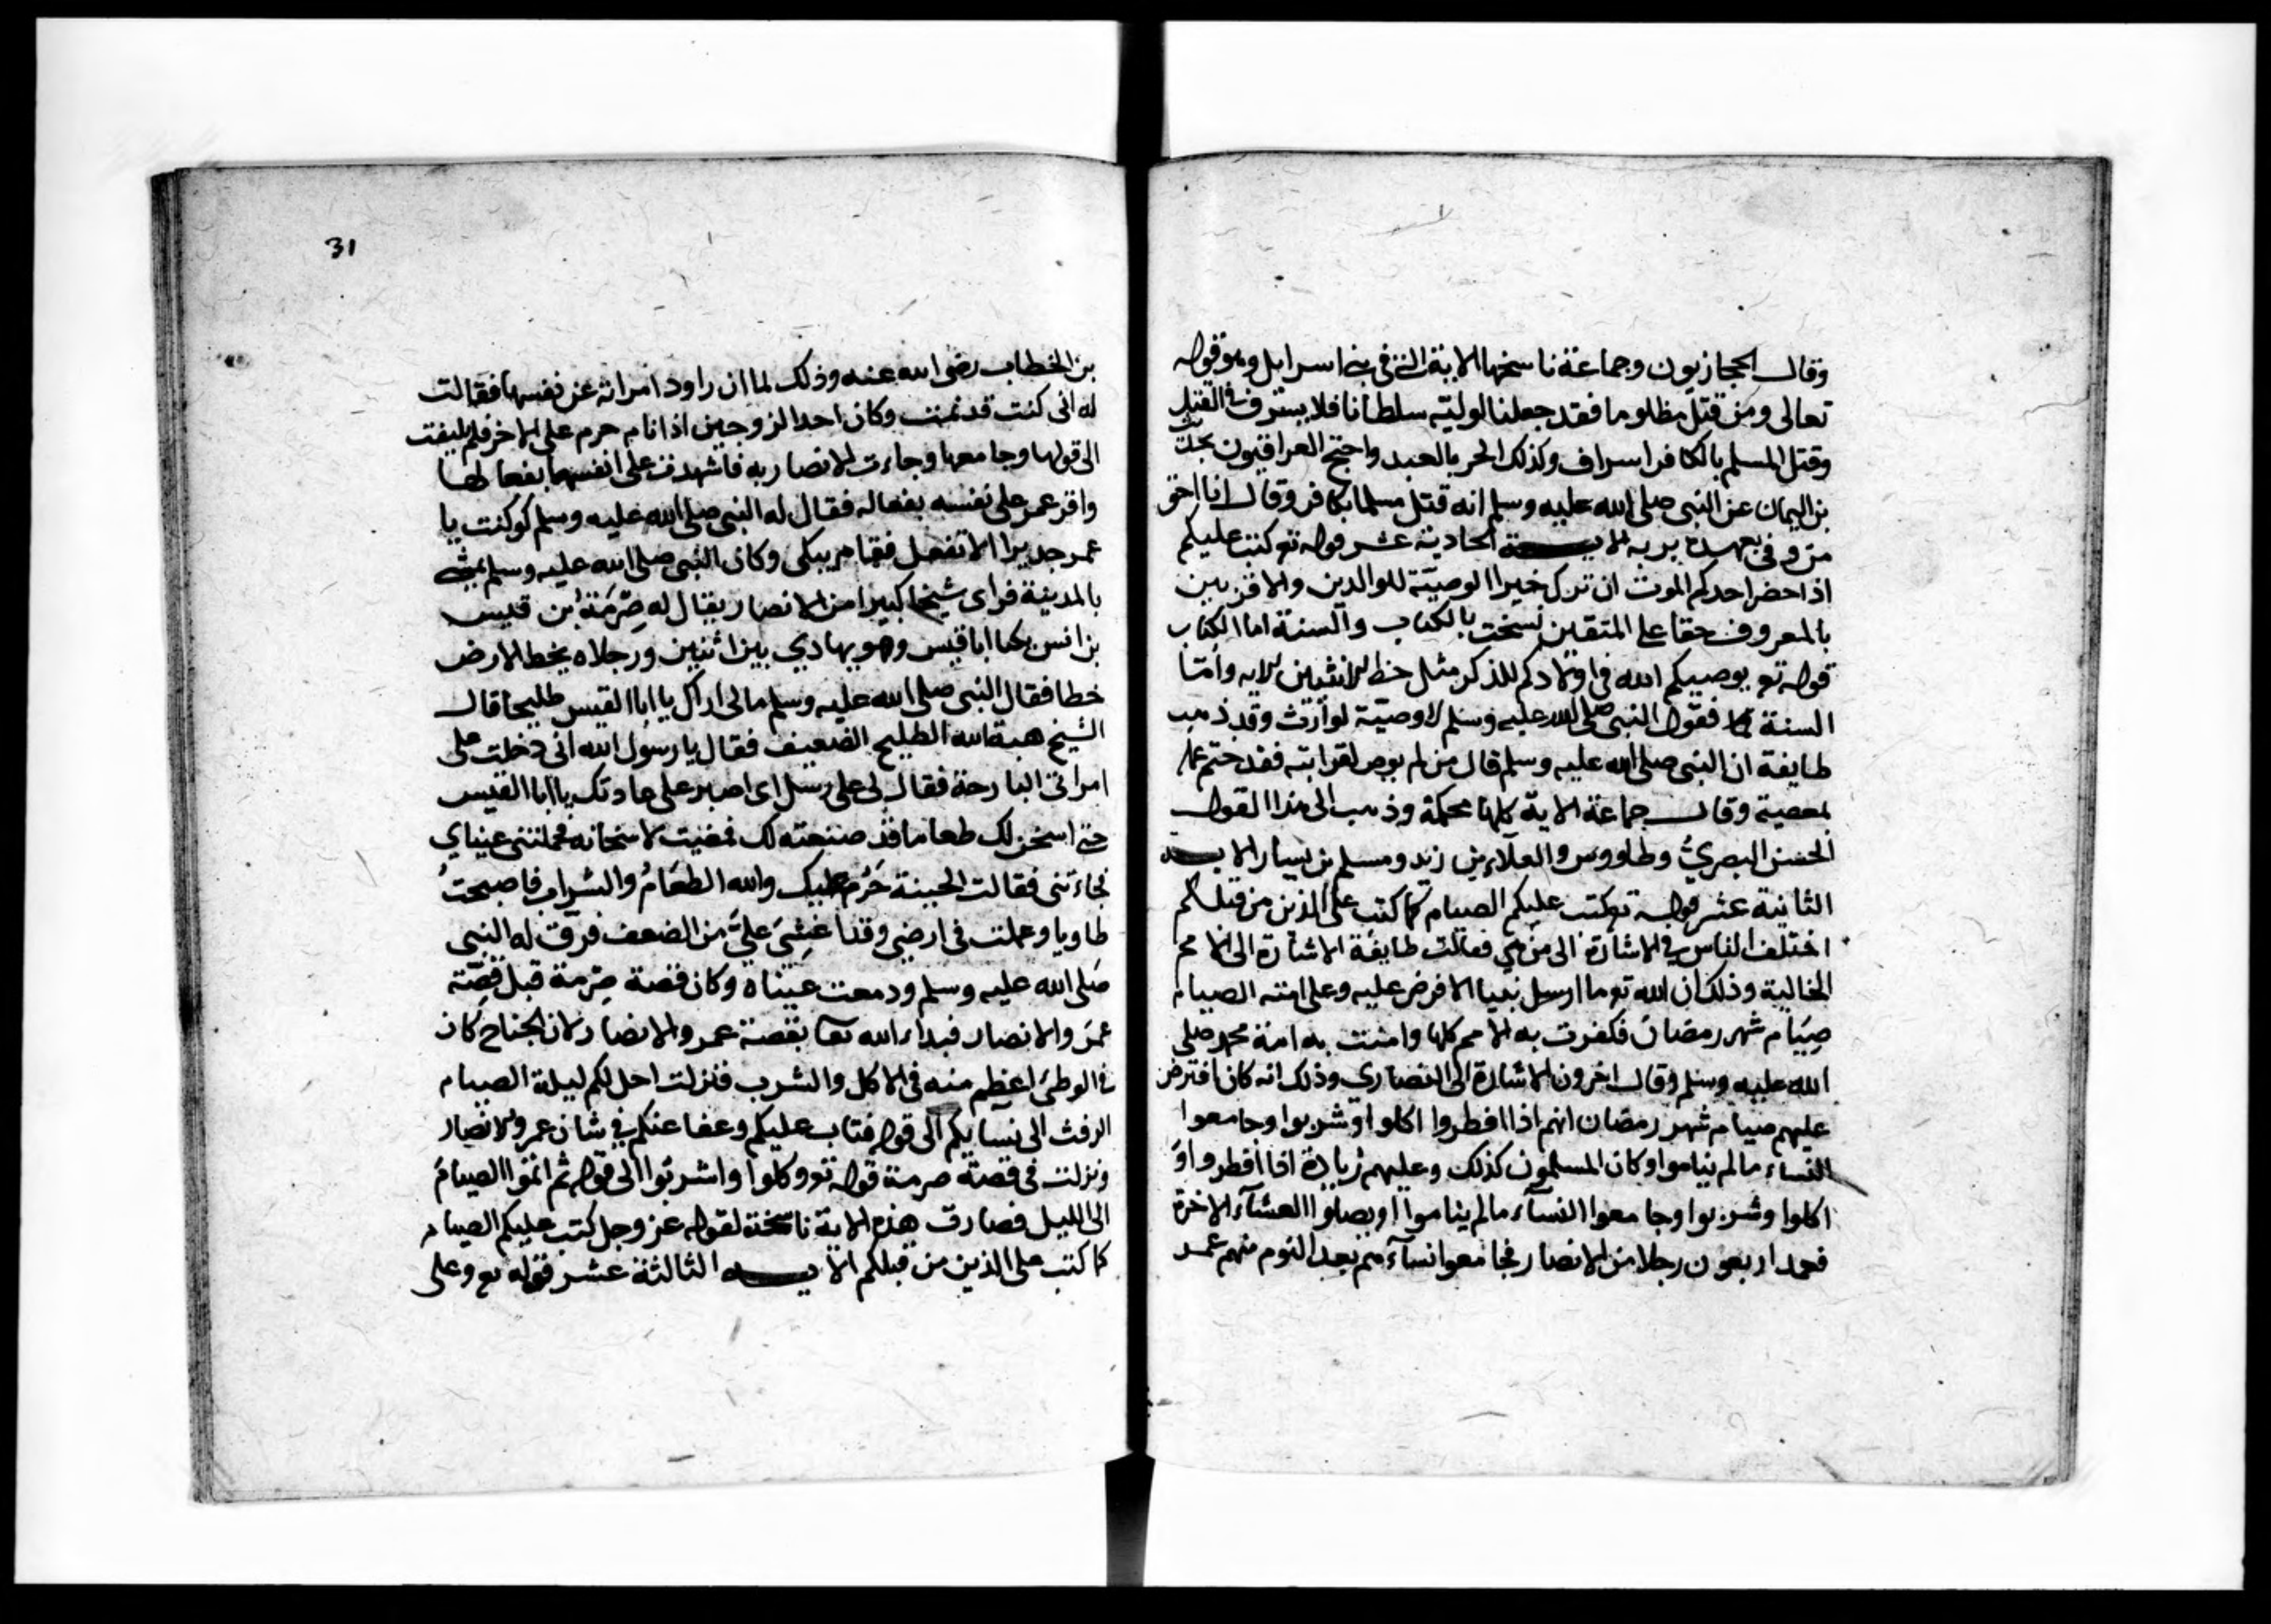 وقال الحجازيون وجماعة ناسخها الاية التي في بني اسرايل وهو قوله
تعالى ومن قتل مظلوما فقد جعلنا لوليه سلطانا فلا يسرف في القتل
وقتل المسلم بالكافر اسراف وكذلك الحر بالعبد واحتج العراقيون بحديث
بن اليمان عن النبي صلى الله عليه وسلم انه قتل مسلما بكافر وقال انا احق
من وفى بعهده الاية الحادية عشر قوله تع كتب عليكم
اذا حضر احدكم الموت ان ترك خيرا الوصية للوالدين والاقربين
بالمعروف حقا على المتقين نسخت بالكتاب والسنة اما الكتاب
قوله تع يوصيكم الله في اولادكم للذكر مثل حظ الانثيين الاية واما
السنة فقول النبي صلى الله عليه وسلم لا وصية لوارث وقد ذهب
طايفة ان النبي صلى الله عليه وسلم قال من لم يوص لقرابته فقد ختم عمله
بمعصية وقال جماعة الاية كلها محكمة وذهب الى هذا القول
الحسن البصري وطاووس والعلاء بن زيد ومسلم بن يسار الاية
الثانية عشر قوله تع كتب عليكم الصيام كما كتب على الذين من قبلكم
اختلف الناس في الاشارة الى من هي فقالت طايفة الاشارة الى الامم
الخالية وذلك ان الله تع ما ارسل نبيا الا فرض عليه وعلى امته الصيام
صيام شهر رمضان فكفرت به الامم كلها وامنت به امة محمد صلى
الله عليه وسلم وقال اخرون الاشارة الى النصارى وذلك انه كان افترض
عليهم صيام شهر رمضان انهم اذا افطروا اكلوا وشربوا وجامعوا
النساء ما لم يناموا وكان المسلمون كذلك وعليهم زيادة اذا افطروا و
اكلوا وشربوا وجامعوا النساء ما لم يناموا او يصلوا العشاء الاخرة
فعمد اربعون رجلا من الانصار فجامعوا نساءهم بعد النوم منهم عمر
31
بن الخطاب رضى الله عنه وذلك لما ان راود امراته عن نفسها فقالت
له انى كنت قد نمت وكان احد الزوجين اذا نام حرم على الاخر فلم يلتفت
الى قولها وجامعها وجاءت الانصار به فاشهدت على انفسهم بفعالها
واقر عمر على نفسه بفعاله فقال له النبي صلى الله عليه وسلم لو كنت يا
عمر جديرا الا تفعل فقام يبكي وكان النبي صلى الله عليه وسلم يمشي
بالمدينة فراى شيخا كبيرا من الانصار يقال له صرمة بن قيس
بن انس يكنا ابا قيس وهو يهادي بين اثنين ورجلاه يخط الارض
خطا فقال النبي صلى الله عليه وسلم مالي اراك يا ابا القيس طليحا قال
الشيخ هبة الله الطليح الضعيف فقال يا رسول الله انى دخلت على
امراتى البارحة فقالت لى على رسلك اى اصبر على عادتك يا ابا القيس
حتى اسخن لك طعاما قد صنعته لك فمضيت لاسخانه فحملتنى عيناي
فجاءتنى فقالت الخيبة حرم عليك والله الطعام والشراب فاصبحت
طاويا وعملت في ارضي وقد غشي علي من الضعف فرق له النبي
صلى الله عليه وسلم ودمعت عيناه وكان قصة صرمة قبل قصة
عمر والانصار فبداء الله تعا بقصة عمر والانصار لان الجناح كان
في الوطئ اعظم منه في الاكل والشرب فنزلت احل لكم ليلة الصيام
الرفث الى نسايكم الى قوله فتاب عليكم وعفا عنكم في شان عمر والانصار
ونزلت في قصة صرمة قوله تع وكلوا واشربوا الى قوله ثم اتموا الصيام
الى الليل فصارت هذه الاية ناسخة لقوله عز وجل كتب عليكم الصيام
كما كتب على الذين من قبلكم الاية الثالثة عشر قوله تع وعلى